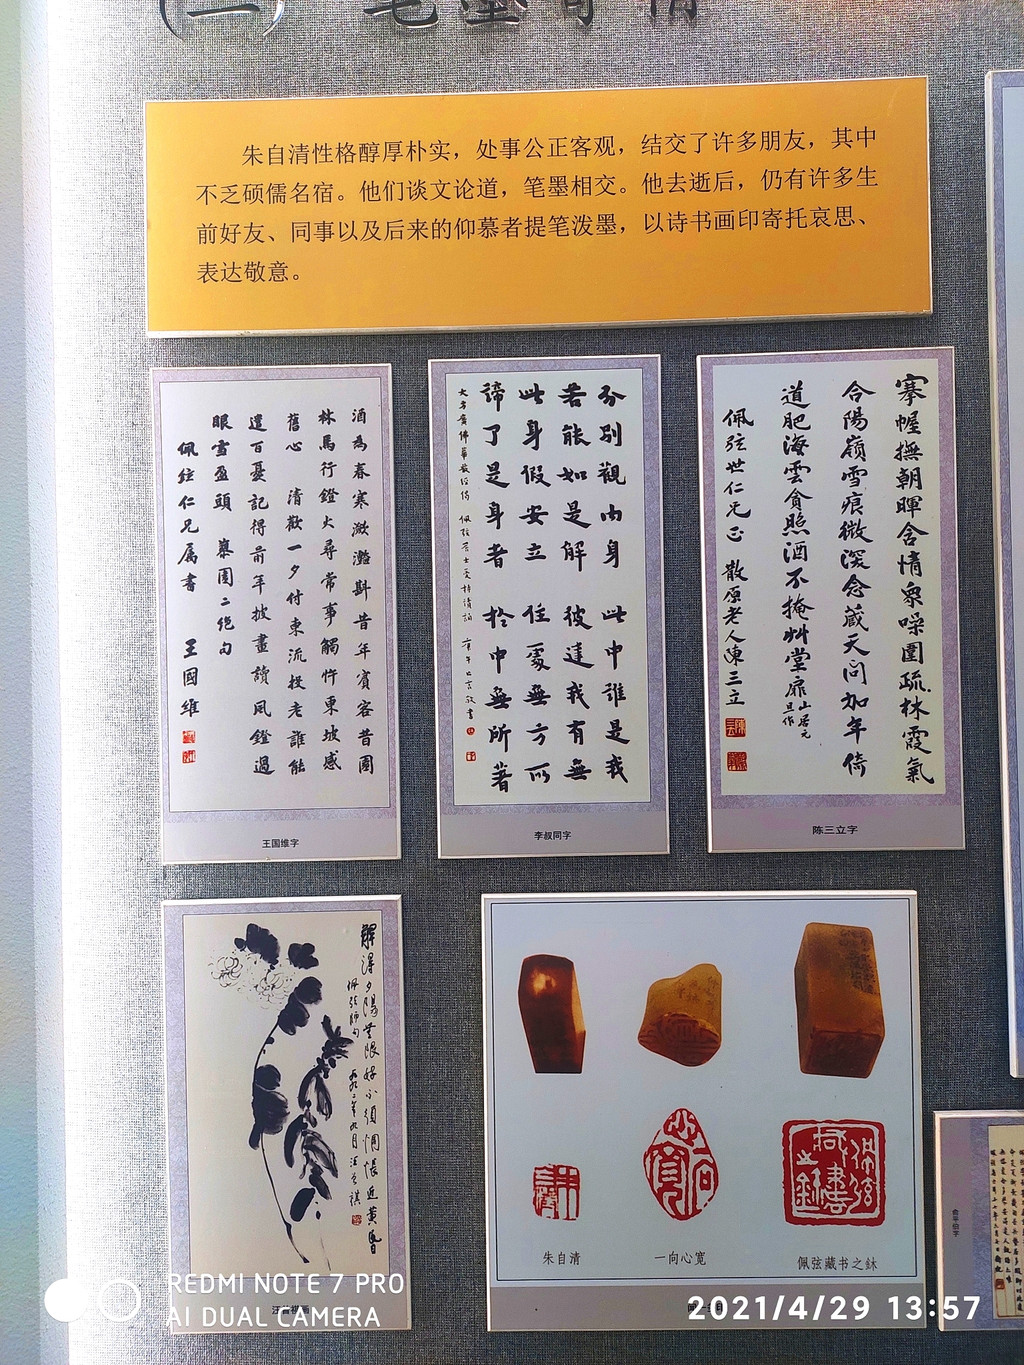 (二) 笔墨寄情
朱自清性格醇厚朴实，处事公正客观，结交了许多朋友，其中
不乏硕儒名宿。他们谈文论道，笔墨相交。他去逝后，仍有许多生
前好友、同事以及后来的仰慕者提笔泼墨，以诗书画印寄托哀思、
表达敬意。
酒為春寒潋灩斟 昔年賓客昔園
林 馬行鐙火尋常事 觸忤東坡感
舊心 清歡一夕付東流 投老誰能
遣百憂 記得前年披畫讀 風鐙過
眼雪盈頭
佩弦仁兄屬書 王國維
王国维字
分別觀內身 此中誰是我
若能如是解 彼達我有無
此身假安立 住處無方所
諦了是身者 於中無所著
李叔同字
搴幄撫朝暉含情泉噪圍疏林霞氣
合陽嶺雪痕微深念藏天問加年倚
道肥海雲貪照酒不掩艸堂扉
佩弦世仁兄正 散原老人陳三立
陈三立字
解得夕陽無限好不須惆悵近黃昏
佩弦師句 一九九二年九月 汪曾祺
朱自清
一向心宽
佩弦藏书之鉥
俞平伯字
REDMI NOTE 7 PRO
AI DUAL CAMERA
2021/4/29 13:57